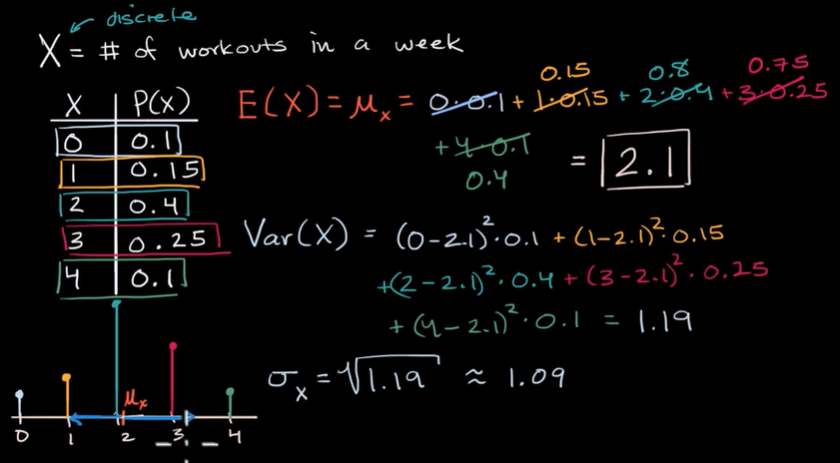 discrete
X = # of workouts in a week
X P(X)
0 0.1
1 0.15
2 0.4
3 0.25
4 0.1
0.15 0.8 0.75
E(X) = μx = 0·0.1 + 1·0.15 + 2·0.4 + 3·0.25
+ 4·0.1 = 2.1
0.4
Var(X) = (0-2.1)²·0.1 + (1-2.1)²·0.15
+(2-2.1)²·0.4 + (3-2.1)²·0.25
+ (4-2.1)²·0.1 = 1.19
σx = √1.19 ≈ 1.09
μx
0 1 2 3 4